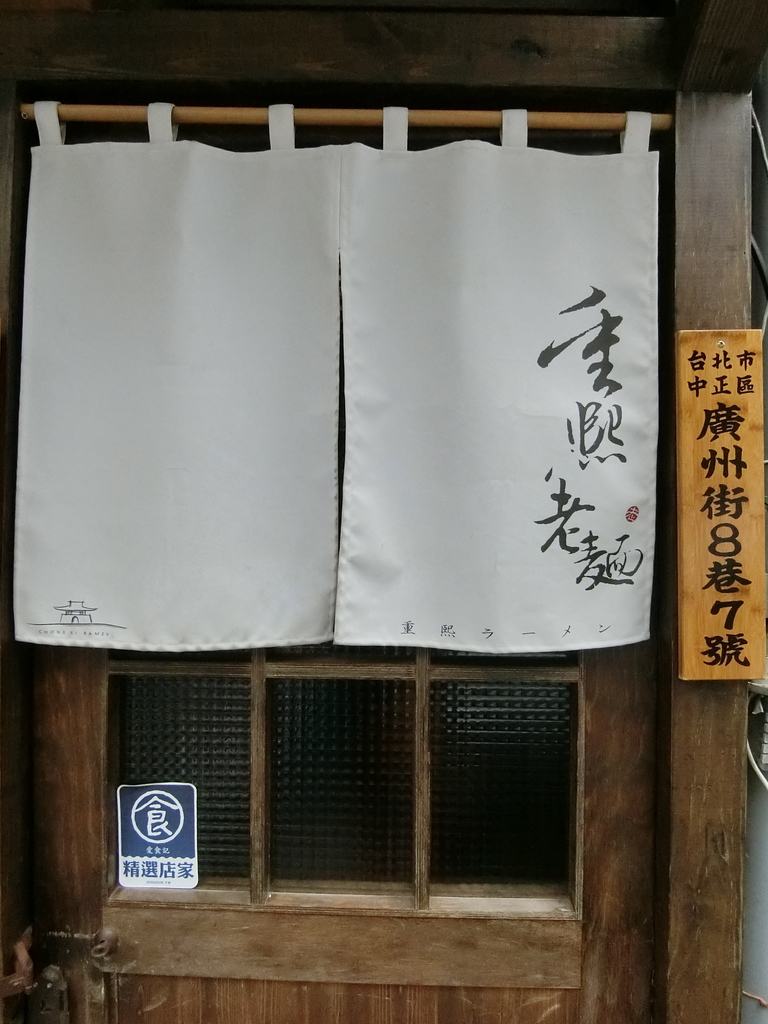 重熙老麵
重熙ラーメン
CHONG XI RAMEN
台北市
中正區
廣州街8巷7號
食
愛食記
精選店家